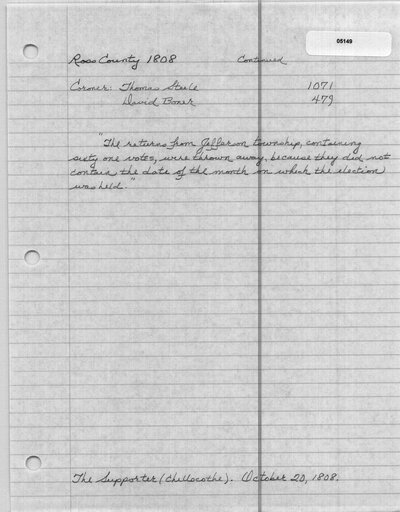 05149
Ross County 1808 Continued
Coroner: Thomas Steele 1071
David Boner 479
"The returns from Jefferson township, containing
sixty one votes, were thrown away, because they did not
contain the date of the month on which the election
was held"
The Supporter (Chellocothe). October 20, 1808.